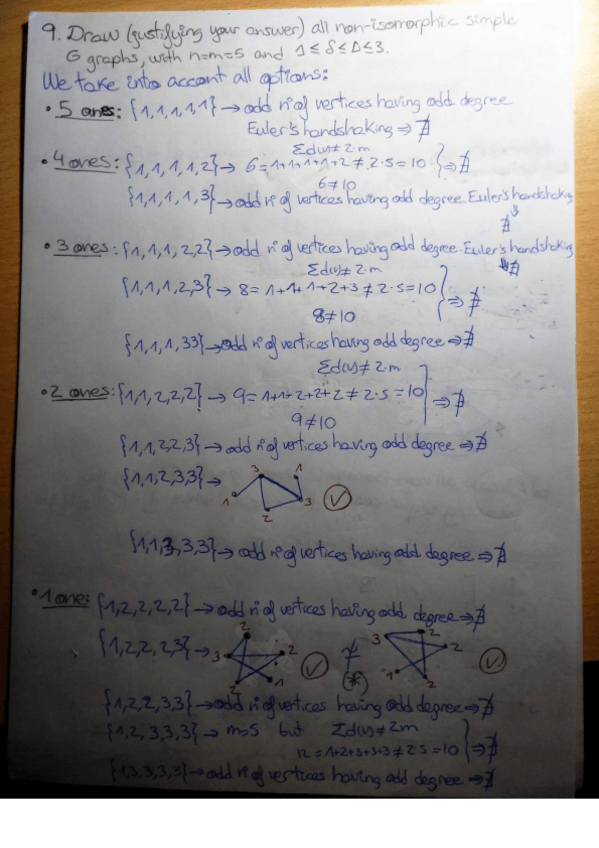 9. Draw (justifying your answer) all non-isomorphic simple
G graphs, with n=m=5 and 1 ≤ δ ≤ Δ ≤ 3.
We take into account all options:
• 5 ones: {1,1,1,1,1} → odd nº of vertices having odd degree
Euler's handshaking ⇒ ∄
Σd(v) ≠ 2·m
• 4 ones: {1,1,1,1,2} → 6 = 1+1+1+1+2 ≠ 2·5 = 10 } ⇒ ∄
6 ≠ 10
{1,1,1,1,3} → odd nº of vertices having odd degree. Euler's handshaking
⇓
∄
• 3 ones: {1,1,1,2,2} → odd nº of vertices having odd degree. Euler's handshaking
⇓ ∄
Σd(v) ≠ 2·m
{1,1,1,2,3} → 8 = 1+1+1+2+3 ≠ 2·5 = 10 } ⇒ ∄
8 ≠ 10
{1,1,1,33} → odd nº of vertices having odd degree ⇒ ∄
Σd(v) ≠ 2·m
• 2 ones: {1,1,2,2,2} → 9 = 1+1+2+2+2 ≠ 2·5 = 10 } ⇒ ∄
9 ≠ 10
{1,1,2,2,3} → odd nº of vertices having odd degree ⇒ ∄
{1,1,2,3,3} → 1 3 2 3 1
{1,1,3,3,3} → odd nº of vertices having odd degree ⇒ ∄
• 1 one: {1,2,2,2,2} → odd nº of vertices having odd degree ⇒ ∄
{1,2,2,2,3} → 3 2 2 1 2 ≄ (*) 3 2 2 1 2
{1,2,2,3,3} → odd nº of vertices having odd degree ⇒ ∄
{1,2,3,3,3} → m=5 but Σd(v) ≠ 2m
12 = 1+2+3+3+3 ≠ 2·5 = 10 } ⇒ ∄
{1,3,3,3,3} → odd nº of vertices having odd degree ⇒ ∄